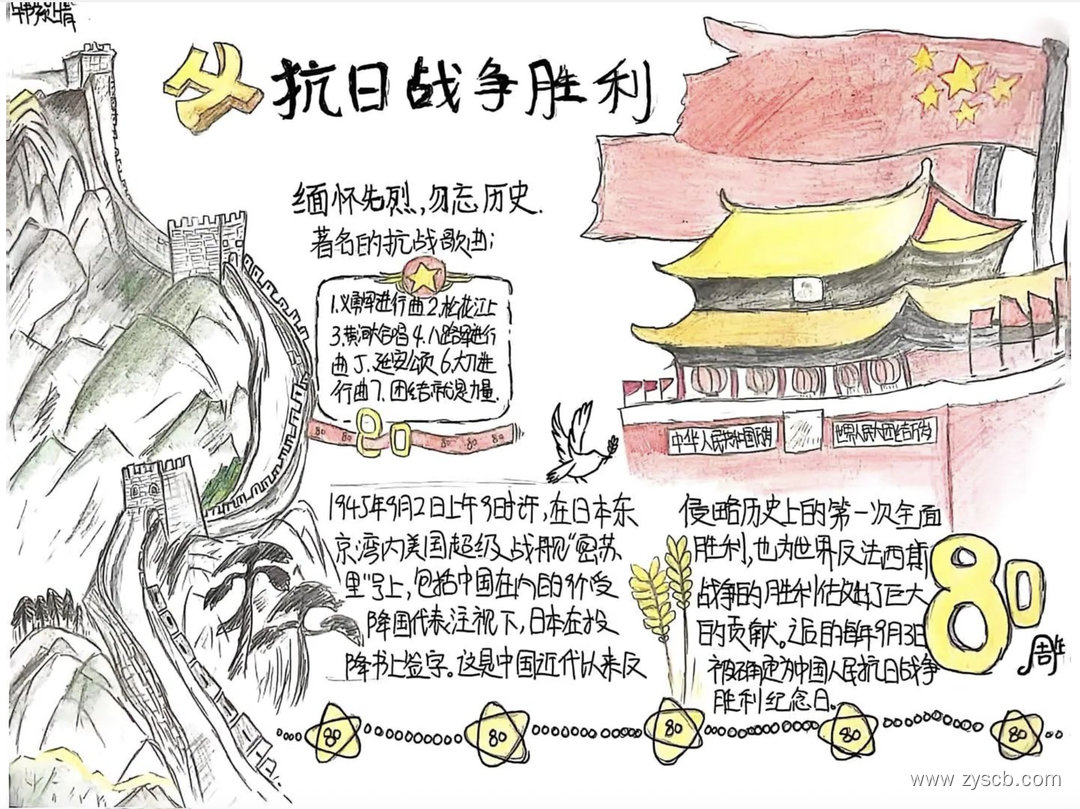 抗日战争胜利
缅怀先烈,勿忘历史.
著名的抗战歌曲:
1.义勇军进行曲2.松花江上
3.黄河大合唱4.八路军进行
曲5.延安颂6.大刀进
行曲7.团结就是力量.
80 80 80 80 80 80
中华人民共和国万岁
世界人民大团结万岁
1945年9月2日上午9时许,在日本东
京湾内美国超级战舰“密苏
里”号上,包括中国在内的9个受
降国代表注视下,日本在投
降书上签字。这是中国近代以来反
侵略历史上的第一次全面
胜利,也为世界反法西斯
战争的胜利做出了巨大
的贡献。之后的每年9月3日
被确定为中国人民抗日战争
胜利纪念日。
80
周年
80 80 80 80 80
www.zyscb.com